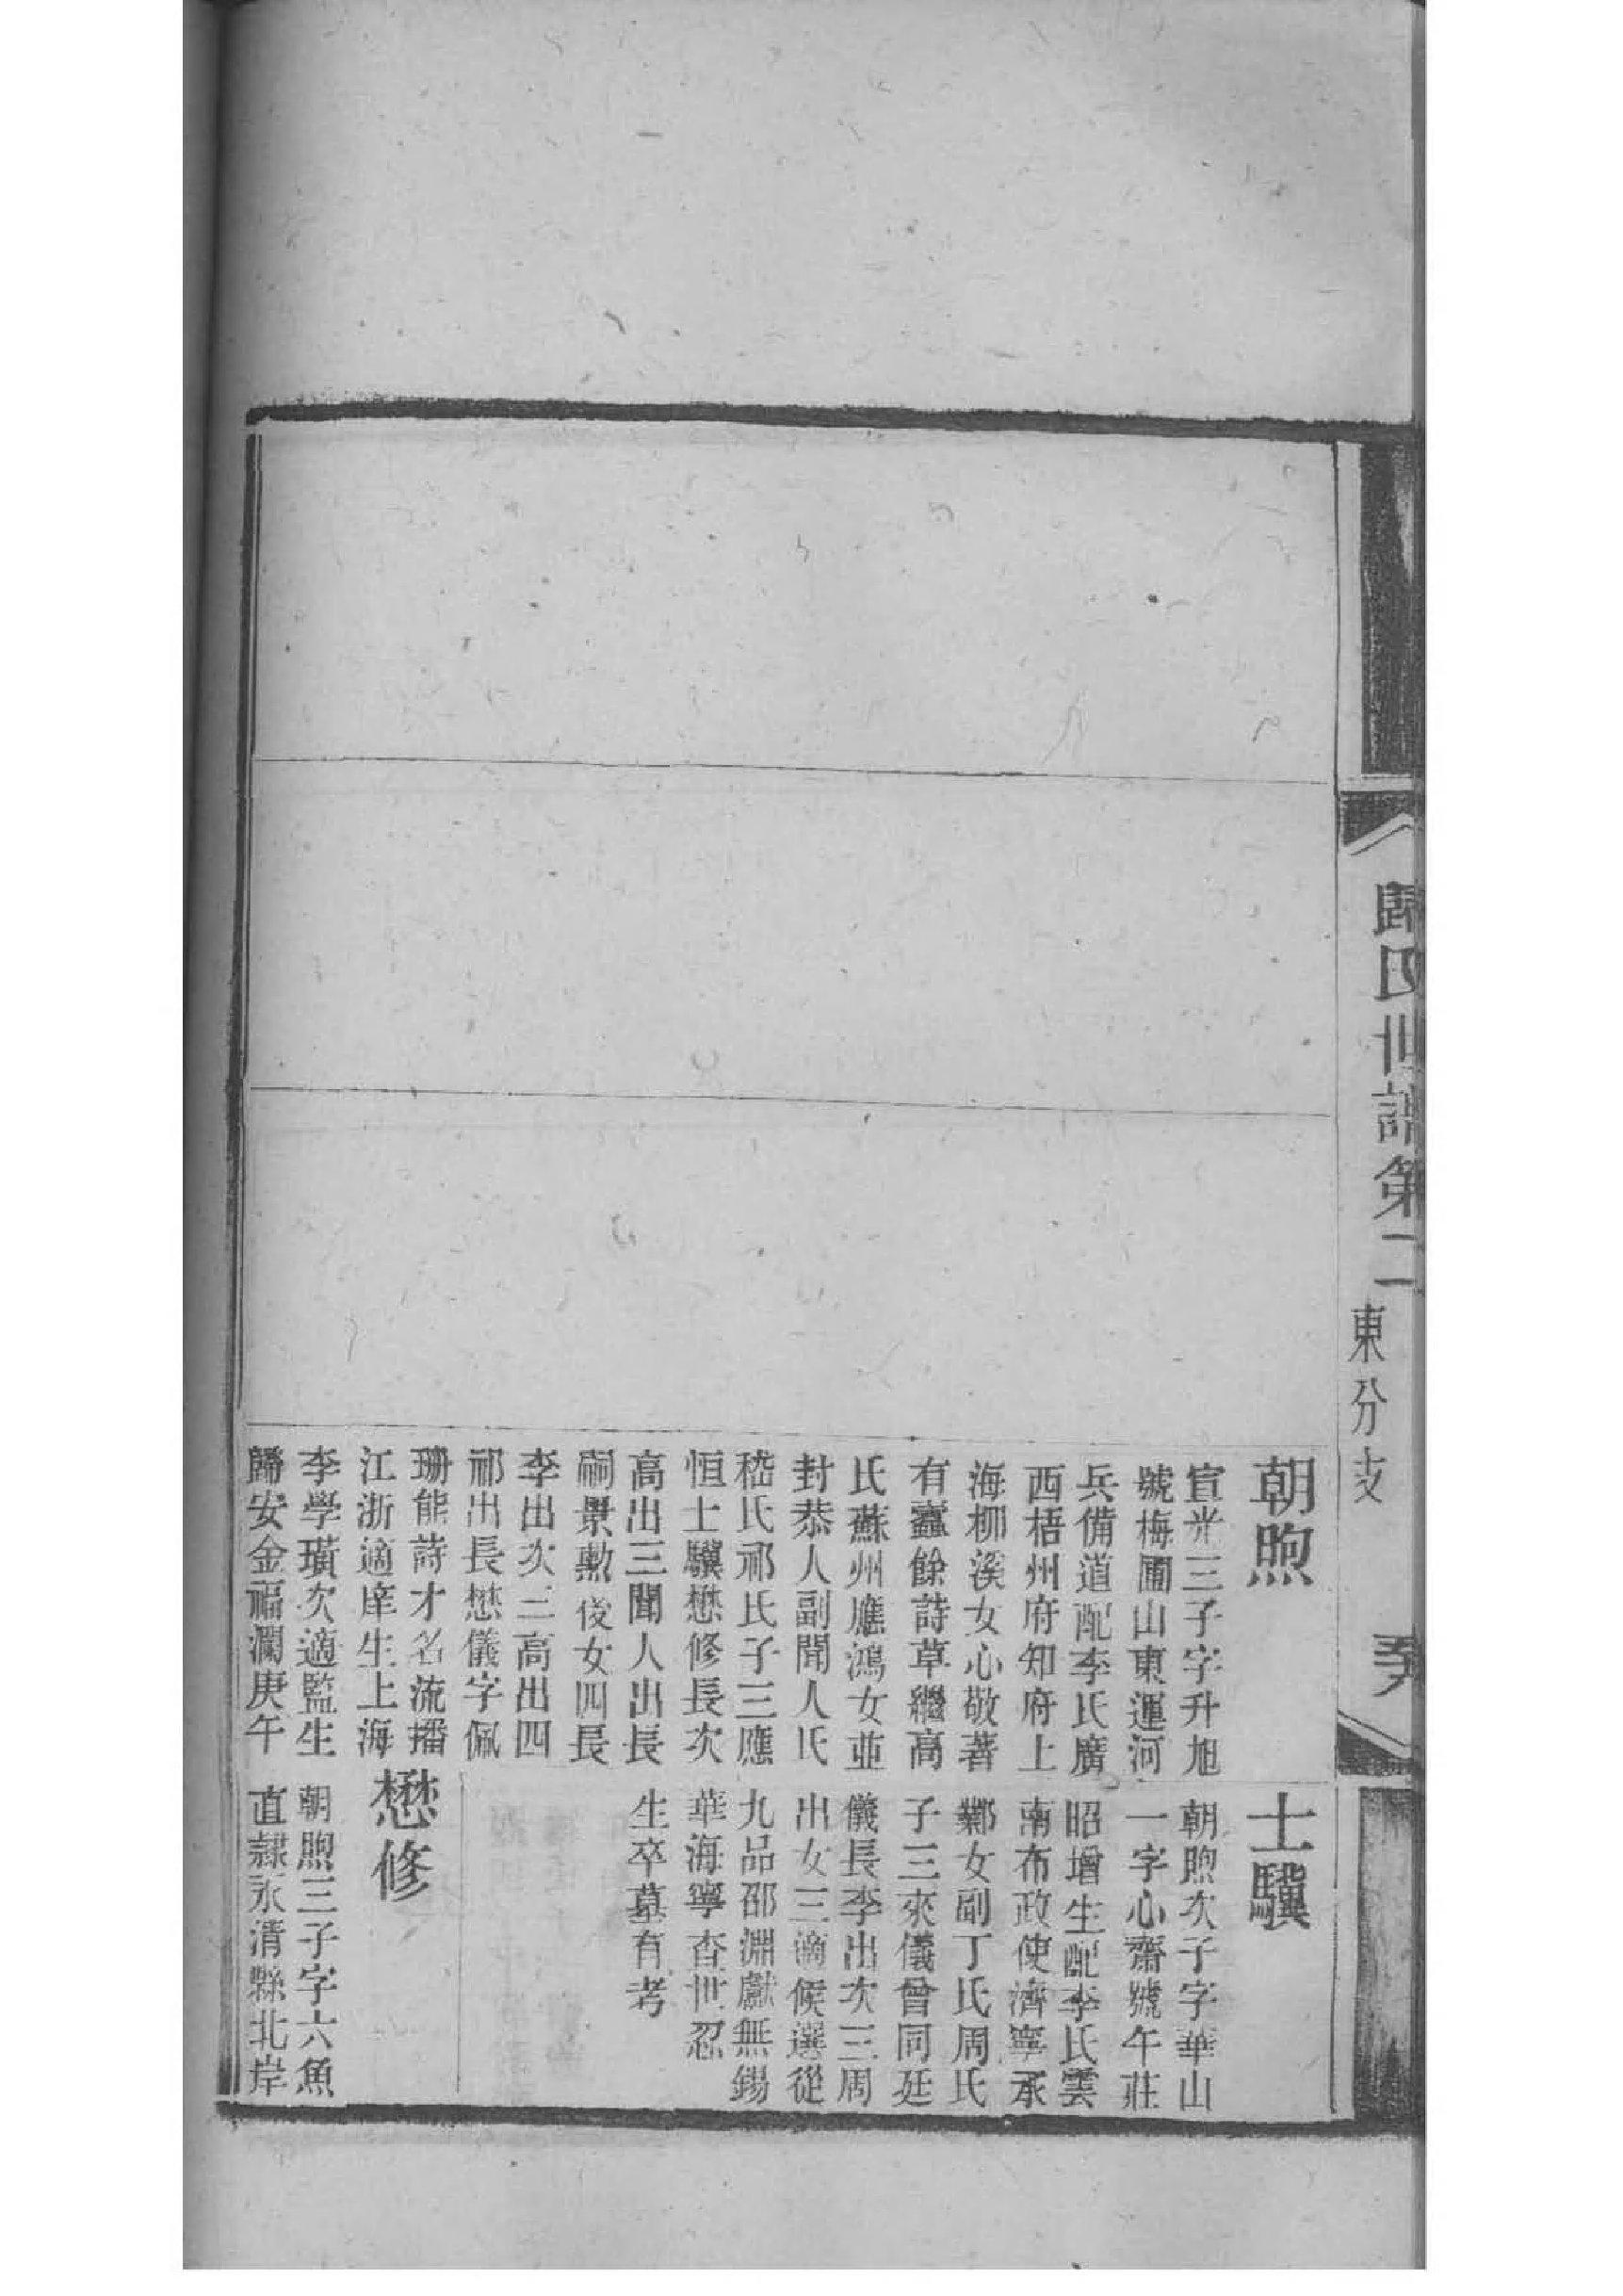 歸氏世譜第二
東分支
朝煦
宣光三子字升旭
號梅圃山東運河
兵備道配李氏廣
西梧州府知府上
海柳溪女心敬著
有蠹餘詩草繼高
氏蘇州應鴻女並
封恭人副聞人氏
嵇氏祁氏子三應
恒士驥懋修長次
高出三聞人出長
嗣景勲後女四長
李出次三高出四
祁出長懋儀字佩
珊能詩才名流播
江浙適庠生上海
李學璜次適監生
歸安金福瀾庚午
士驥
朝煦次子字華山
一字心齋號午莊
昭增生配李氏雲
南布政使濟寧承
鄴女副丁氏周氏
子三來儀曾同廷
儀長李出次三周
出女三適候選從
九品邵淵獻無錫
華海寧查世忍
生卒墓有考
懋修
朝煦三子字六魚
直隸永清縣北岸